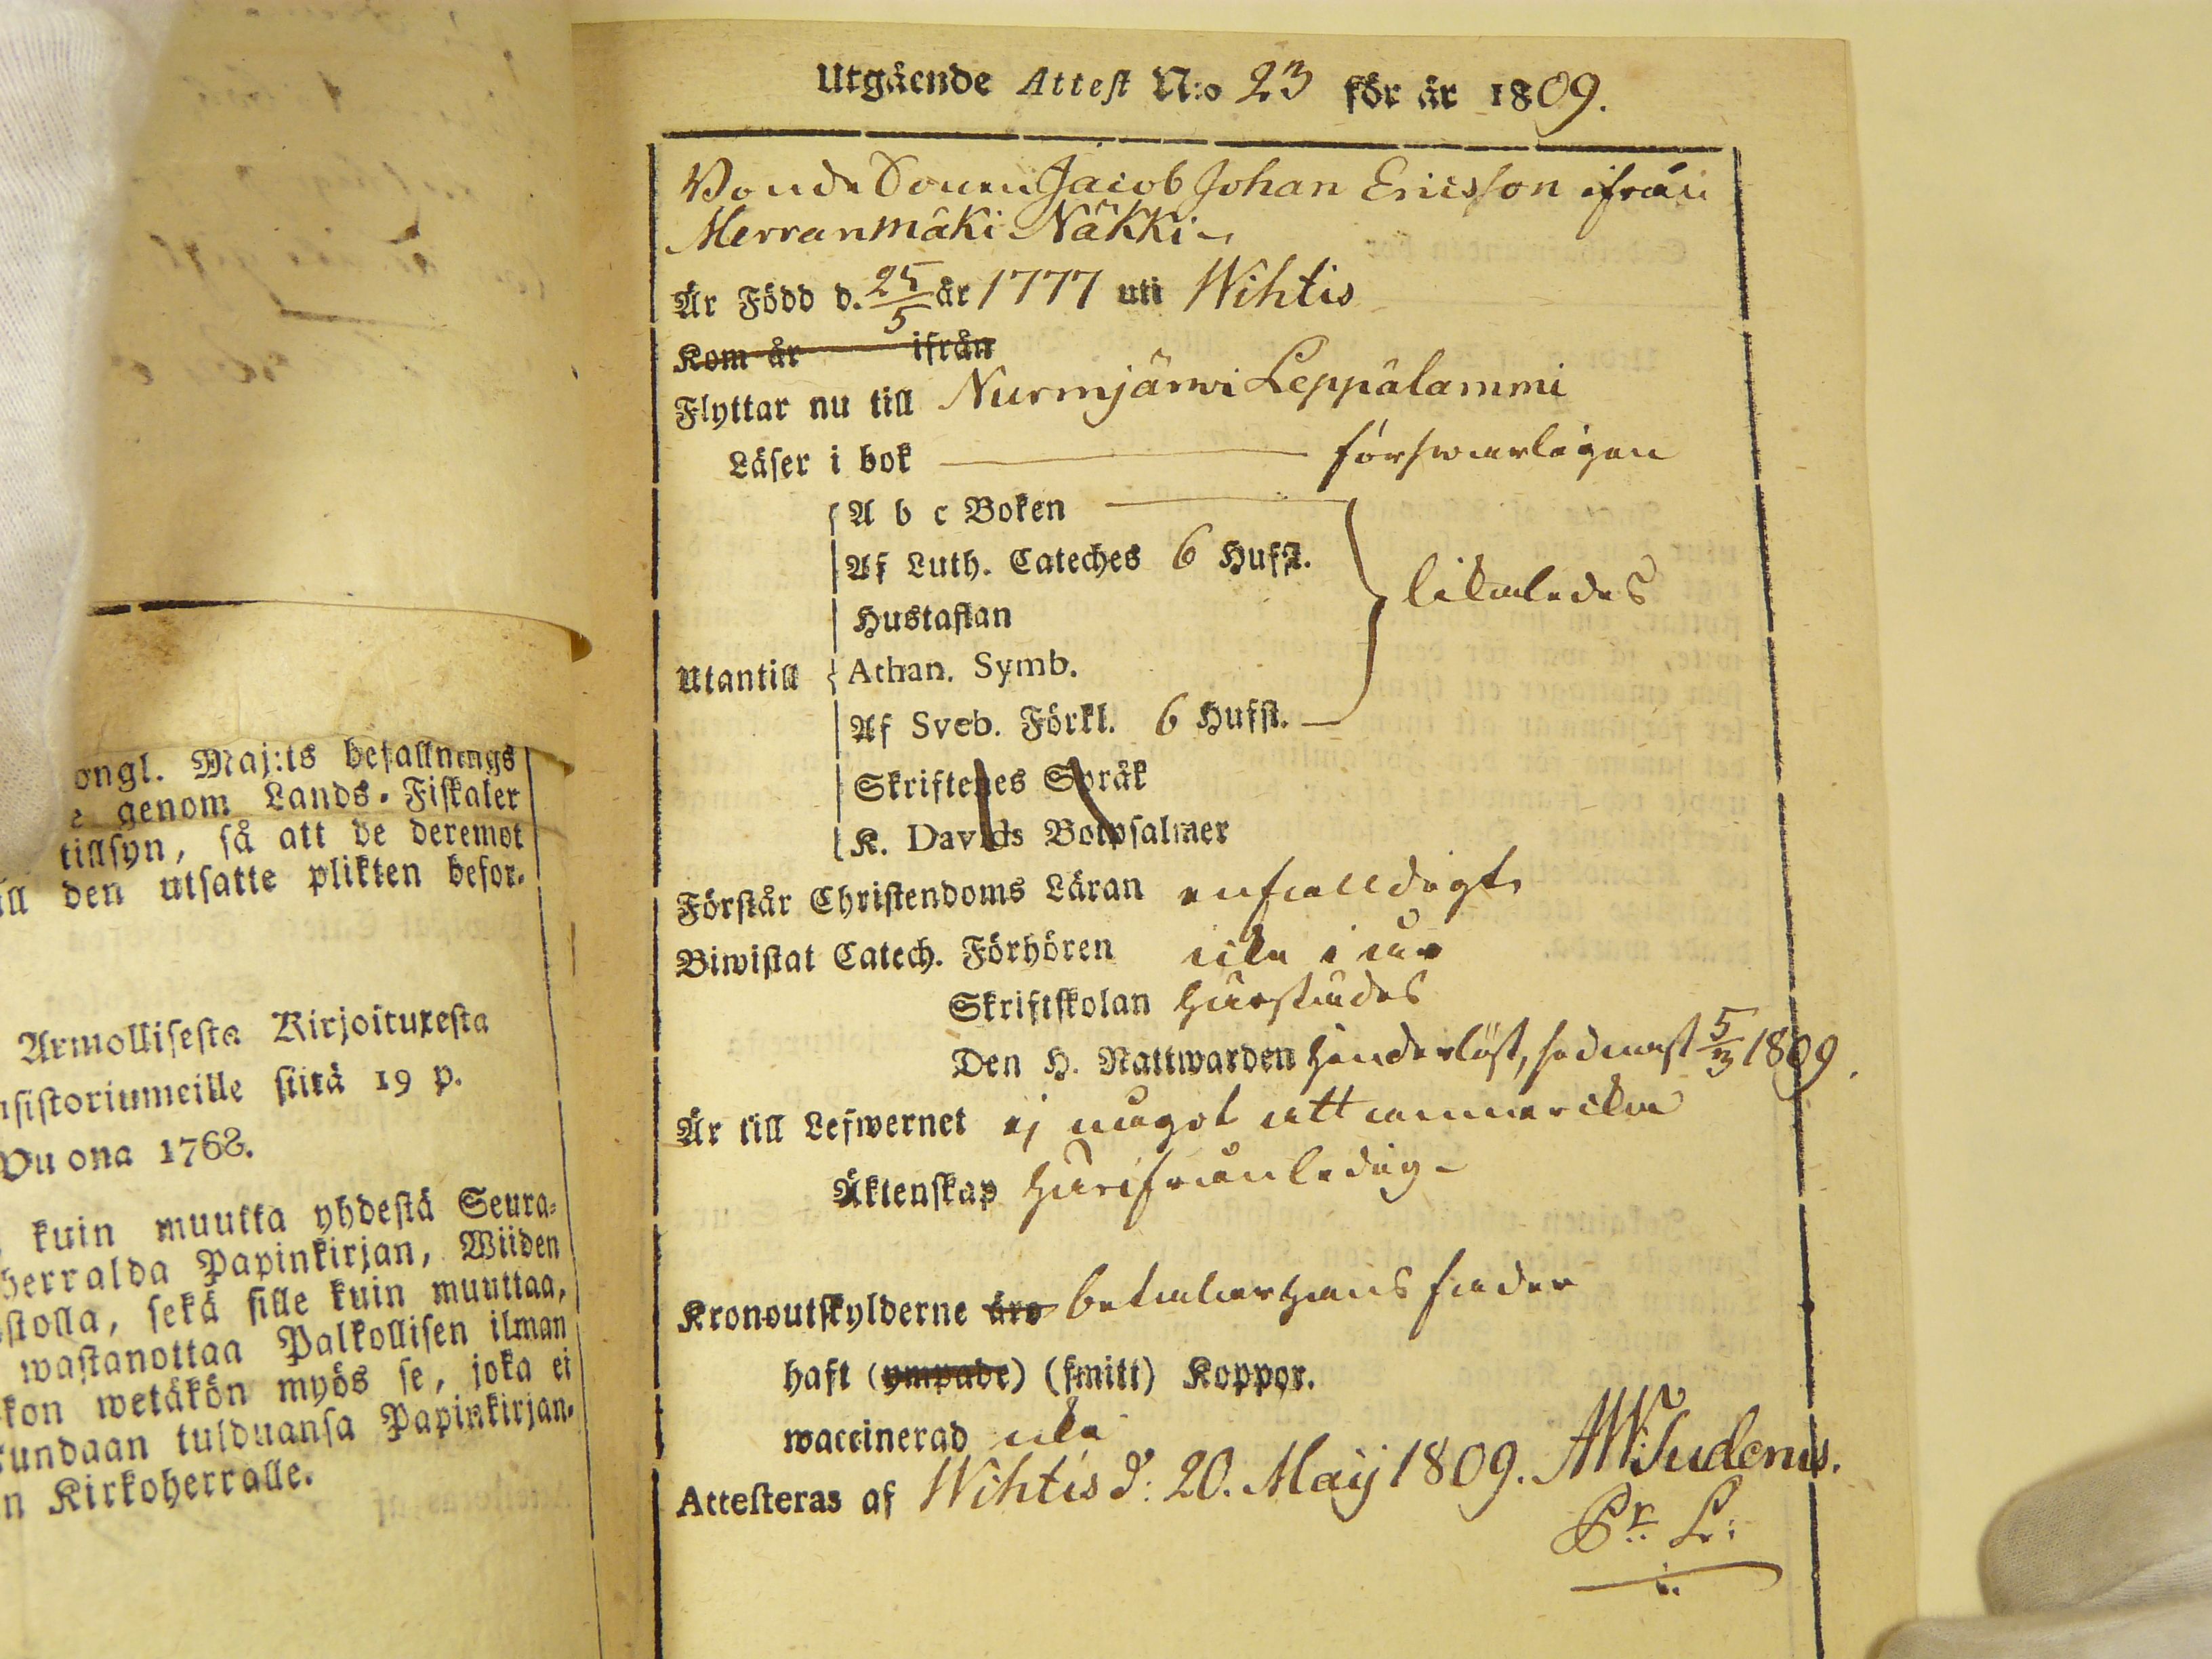 ongl. Maj:ts befallnings
e genom Lands-Fiskaler
tillsyn, så att de deremot
ill den utsatte plikten befor-
Armollisesta Kirjoituxesta
nsistoriumeille siitä 19 p.
Vuona 1768.
kuin muutta yhdestä Seura-
herralda Papinkirjan, Wiiden
stolla, sekä sille kuin muuttaa,
wastanottaa Palkollisen ilman
kon wetäkön myös se, joka ei
kundaan tulduansa Papinkirjan-
n Kirkoherralle.
Utgående Attest N:o 23 för år 1809.
Bonde Sonen Jacob Johan Ericsson ifrån
Merranmäki Näkki
Är Född d. 25/5 år 1777 uti Wihtis
Kom år ifrån
Flyttar nu till Nurmjärwi Leppälammi
Läser i bok förswarligen
A b c Boken
Af Luth. Cateches 6 Hufst.
likaledes
Hustaflan
Utantill Athan. Symb.
Af Sveb. Förkl. 6 Hufst.
Skriftenes Språk
K. Davids Botpsalmer
Förstår Christendoms Läran enfalldigt
Biwistat Catech. Förhören icke i år
Skriftskolan härstädes
Den H. Nattwarden hinderlöst, sednast 5/3 1809.
Är till Lefwernet ej något att anmärcka
Äktenskap härifrån ledig
Kronoutskylderne äro betalar hans fader
haft (ympade) (smitt) Koppor.
waccinerad icke
Attesteras af Wihtis d: 20. Maij 1809. AWSudenius.
Pr. L: